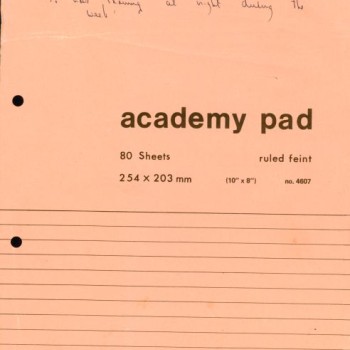 at night during the
week
academy pad
80 Sheets ruled feint
254 × 203 mm (10" x 8") no. 4607